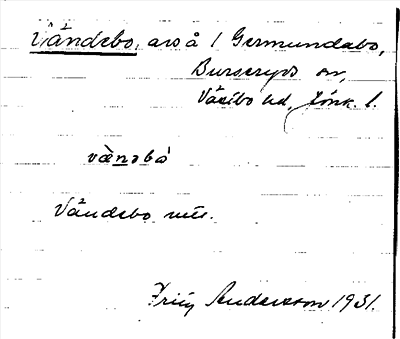 Vändebo, avs å 1 Germundabo,
Burseryds sn,
Västbo hd, Jönk. l.
vä̀nəbó
Vändebo nu.
Andersson 1931.